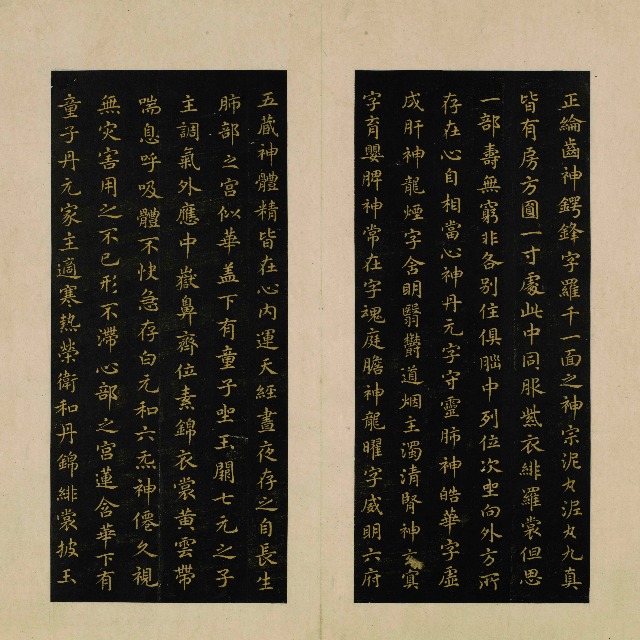 正綸齒神鍔鋒字羅千一面之神宗泥丸泥丸九真
皆有房方圓一寸處此中同服紫衣緋羅裳但思
一部壽無窮非各別住俱腦中列位次坐向外方所
存在心自相當心神丹元字守靈肺神皓華字虛
成肝神龍煙字含明翳鬱道烟主濁清腎神玄冥
字育嬰脾神常在字魂庭膽神龍曜字威明六府
五藏神體精皆在心內運天經晝夜存之自長生
肺部之宮似華蓋下有童子坐玉闕七元之子
主調氣外應中嶽鼻齊位素錦衣裳黃雲帶
喘息呼吸體不快急存白元和六炁神僊久視
無灾害用之不已形不滯心部之宮蓮含華下有
童子丹元家主適寒熱榮衛和丹錦緋裳披玉